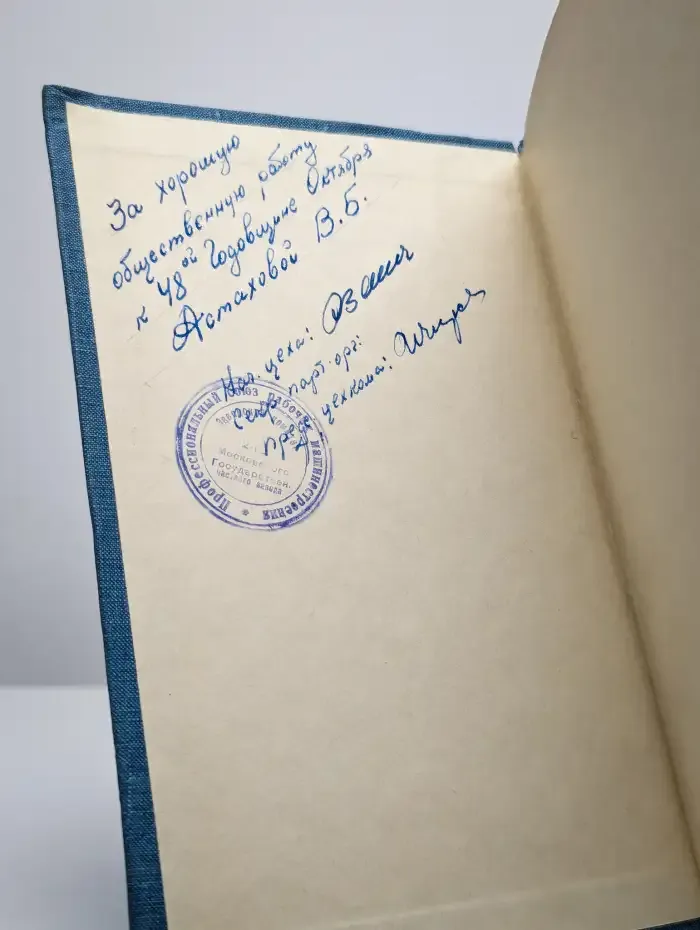 За хорошую
общественную работу
к 48ой Годовщине Октября
Астаховой В.Б.
Нач. цеха:
Секр. парт. орг.:
Пред. цехкома:
Профессиональный союз рабочих машиностроения
Московского
Государствен.
часового завода